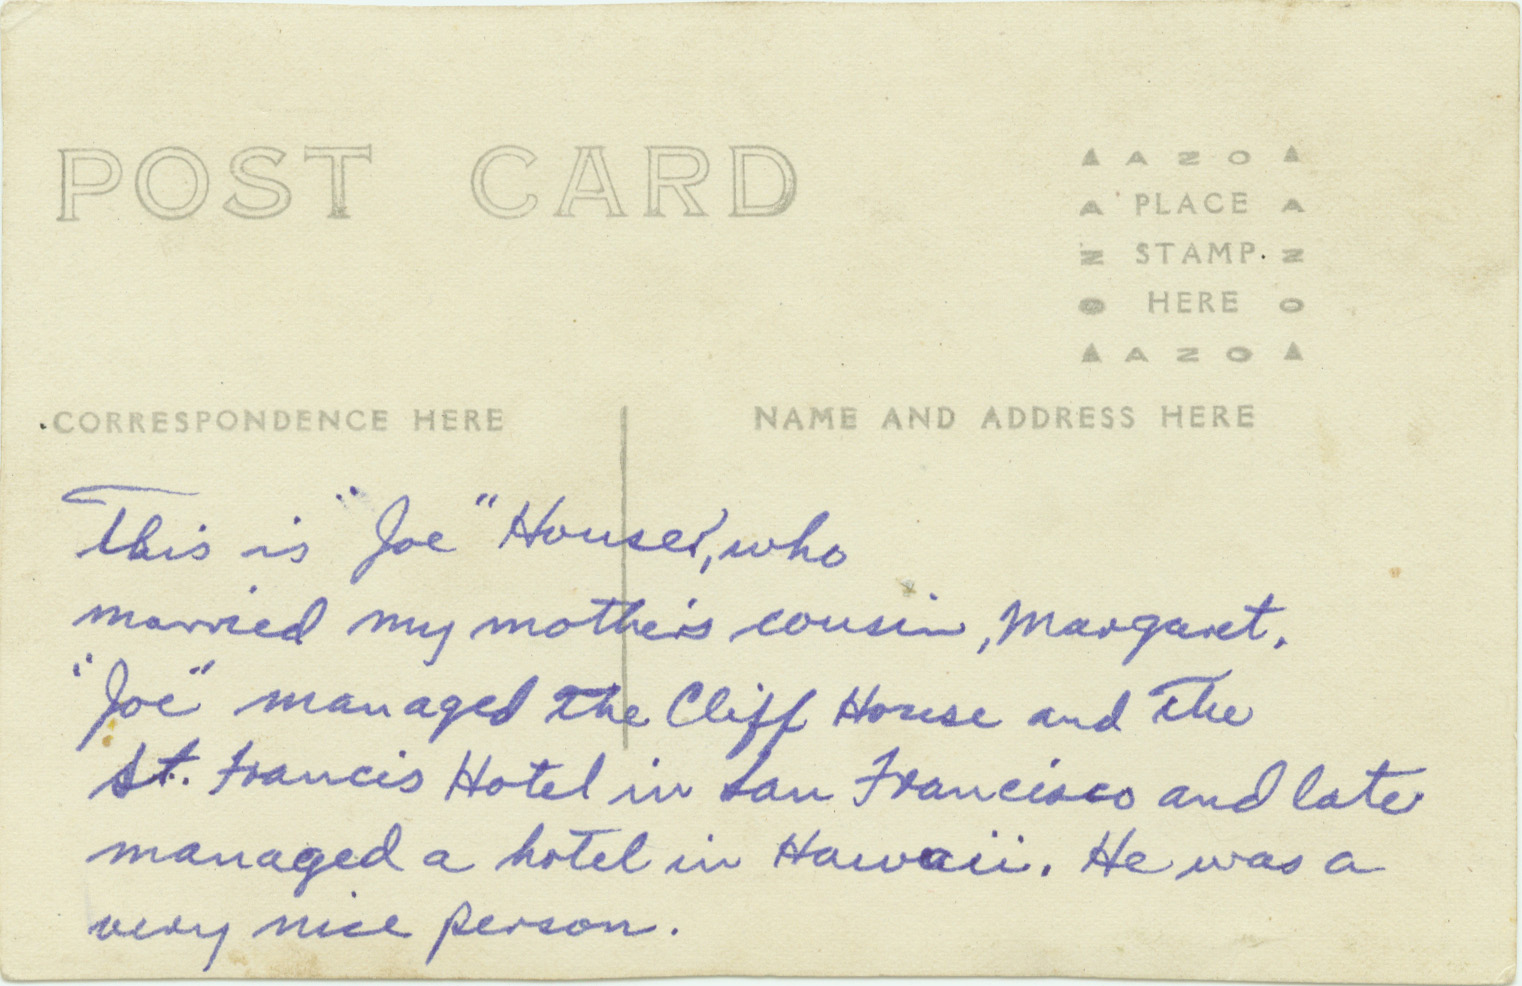 POST CARD
AZO
PLACE
STAMP
HERE
AZO
AZO
AZO
CORRESPONDENCE HERE
NAME AND ADDRESS HERE
This is "Joe" Houser, who
married my mother's cousin, Margaret.
"Joe" managed the Cliff House and the
St. Francis Hotel in San Francisco and later
managed a hotel in Hawaii. He was a
very nice person.